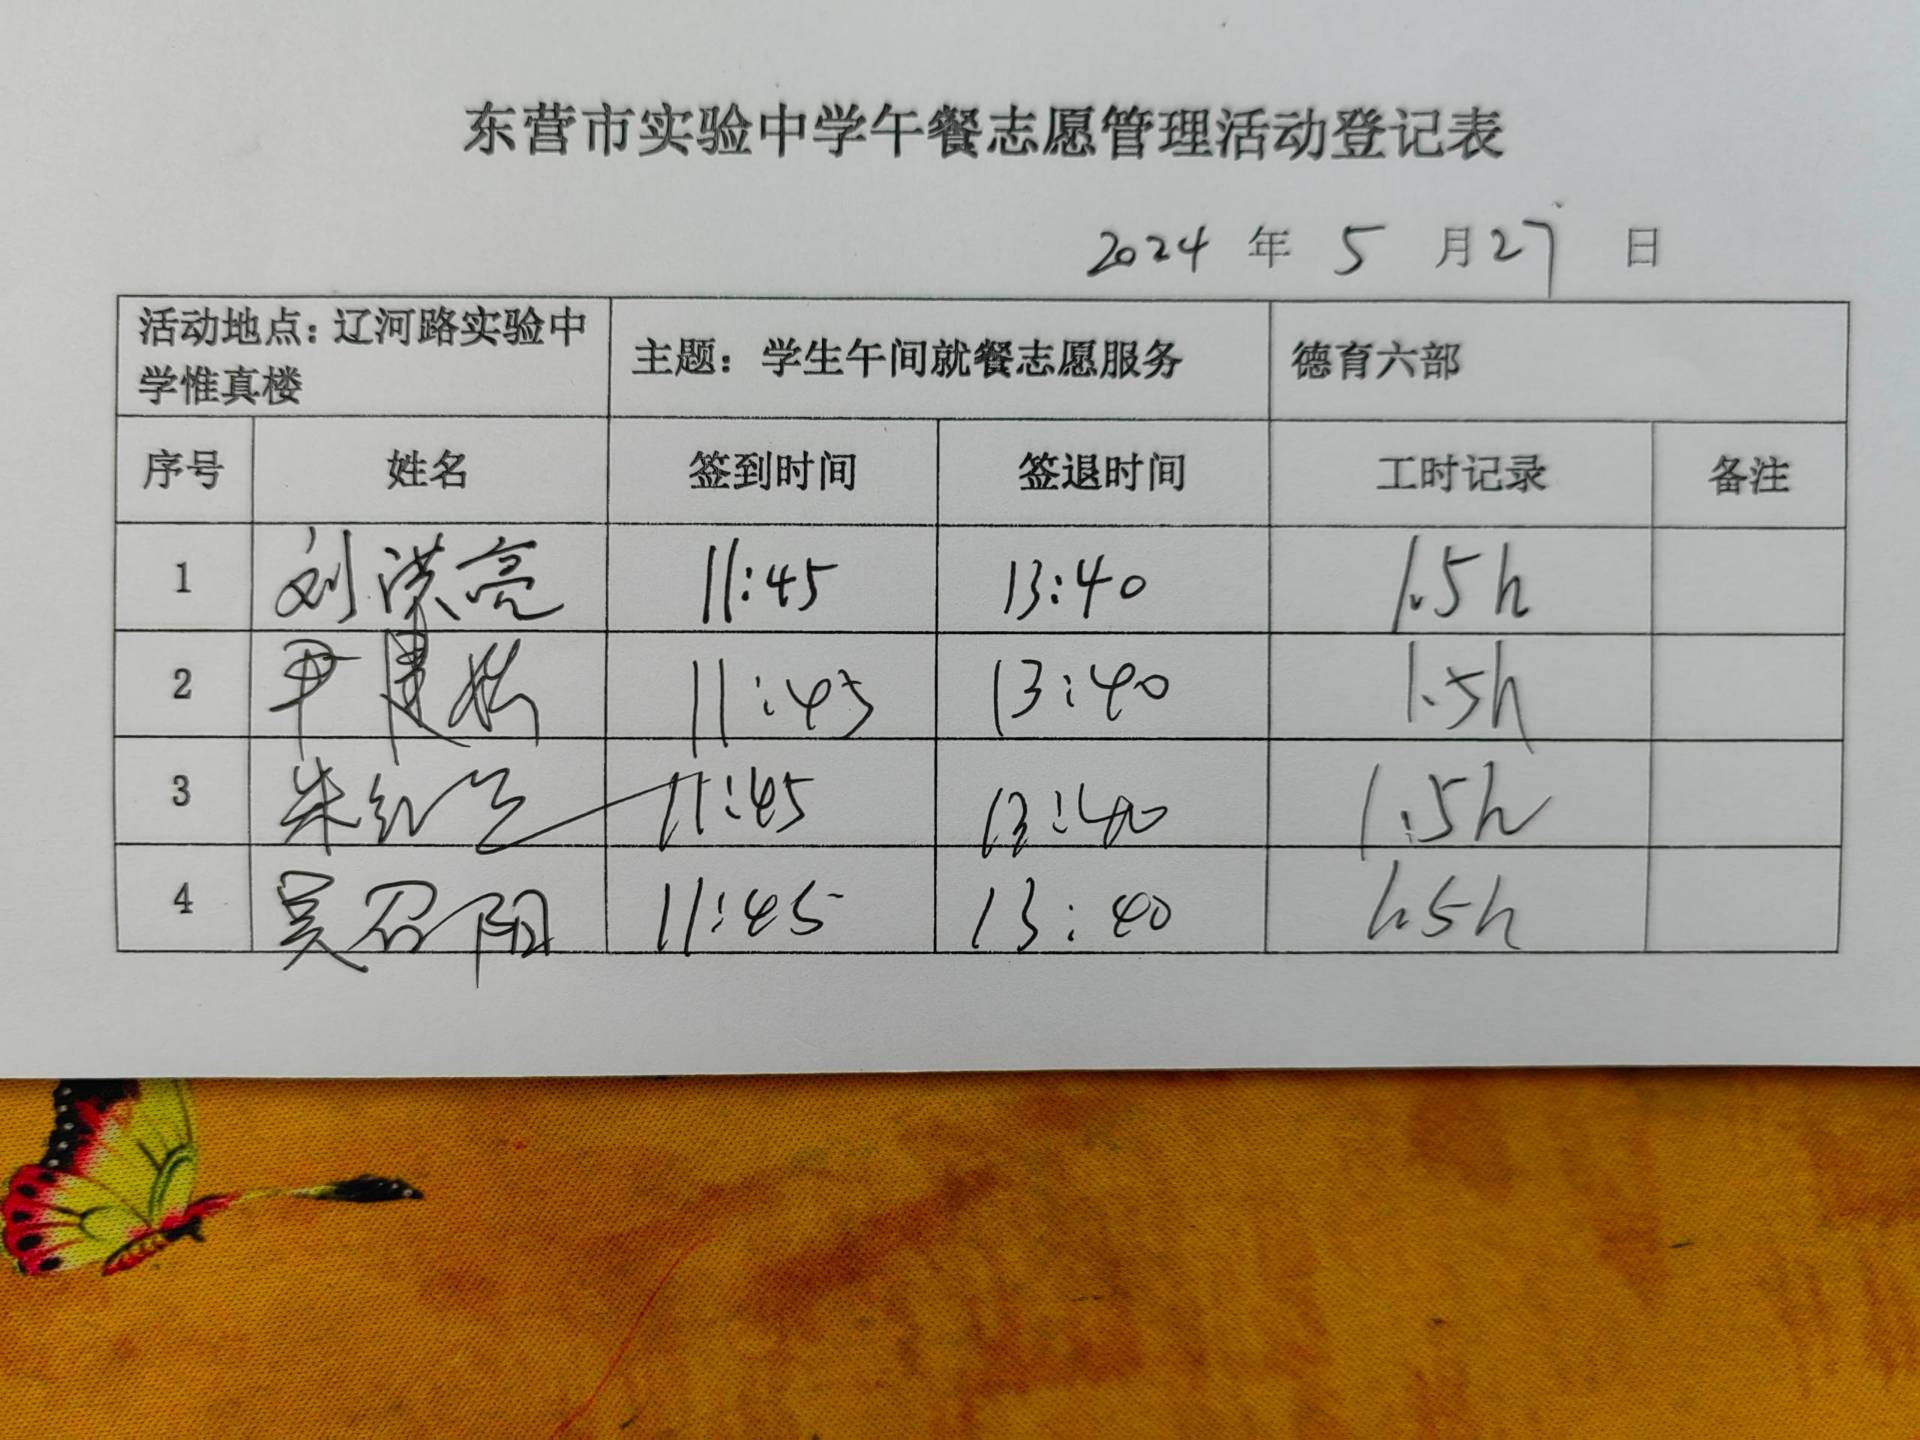 东营市实验中学午餐志愿管理活动登记表
2024 年 5 月 27 日
活动地点：辽河路实验中
学惟真楼
主题：学生午间就餐志愿服务
德育六部
序号 姓名 签到时间 签退时间 工时记录 备注
1 刘洪亮 11:45 13:40 1.5h
2 尹建松 11:45 13:40 1.5h
3 朱红 11:45 13:40 1.5h
4 吴召阳 11:45 13:40 1.5h